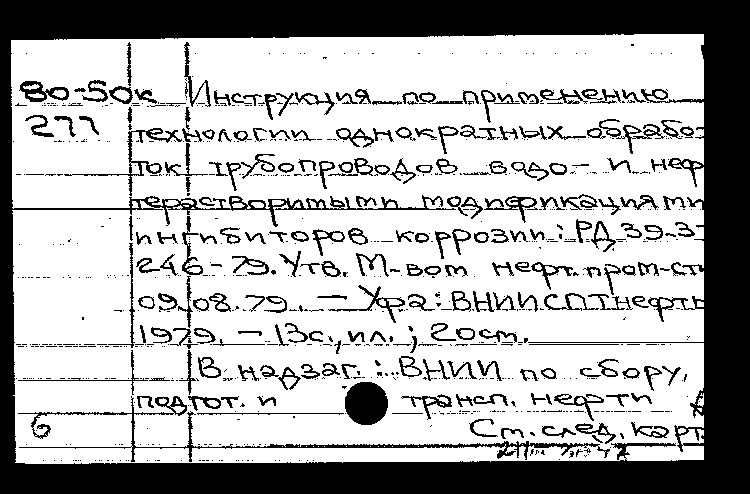 80-50к Инструкция по применению
277 технологии однократных обрабо-
ток трубопроводов водо- и неф
терастворимыми модификациями
ингибиторов коррозии: РД 39-3-
246-79. Утв. М-вом нефт. пром-сти
09.08.79. — Уфа: ВНИИСПТнефть
1979. — 13с., ил.; 20см.
В надзаг.: ВНИИ по сбору,
подгот. и трансп. нефти
6 См. след. карт.